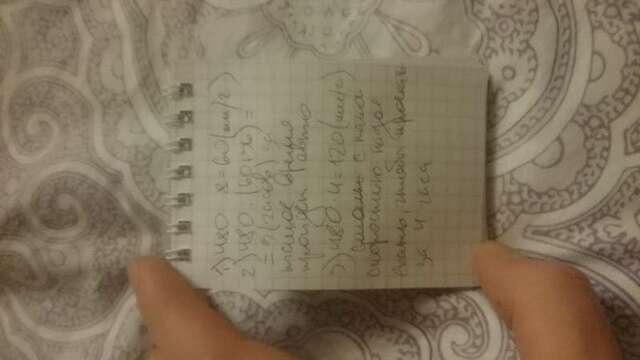 1) 480 : 8 = 60 (км/г)
2) 480 : (60+36) =
= 5 (часов) за
такое время
пройдёт авто
3) 480 : 4 = 120 (км/г)
с
скоростью надо
чтобы проехать
за 4 часа